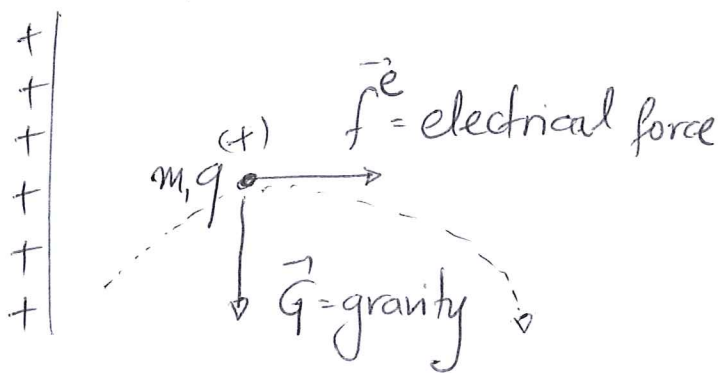 +
+
+
+
+
+
(+)
m, q
f⃗ᵉ = electrical force
G⃗ = gravity